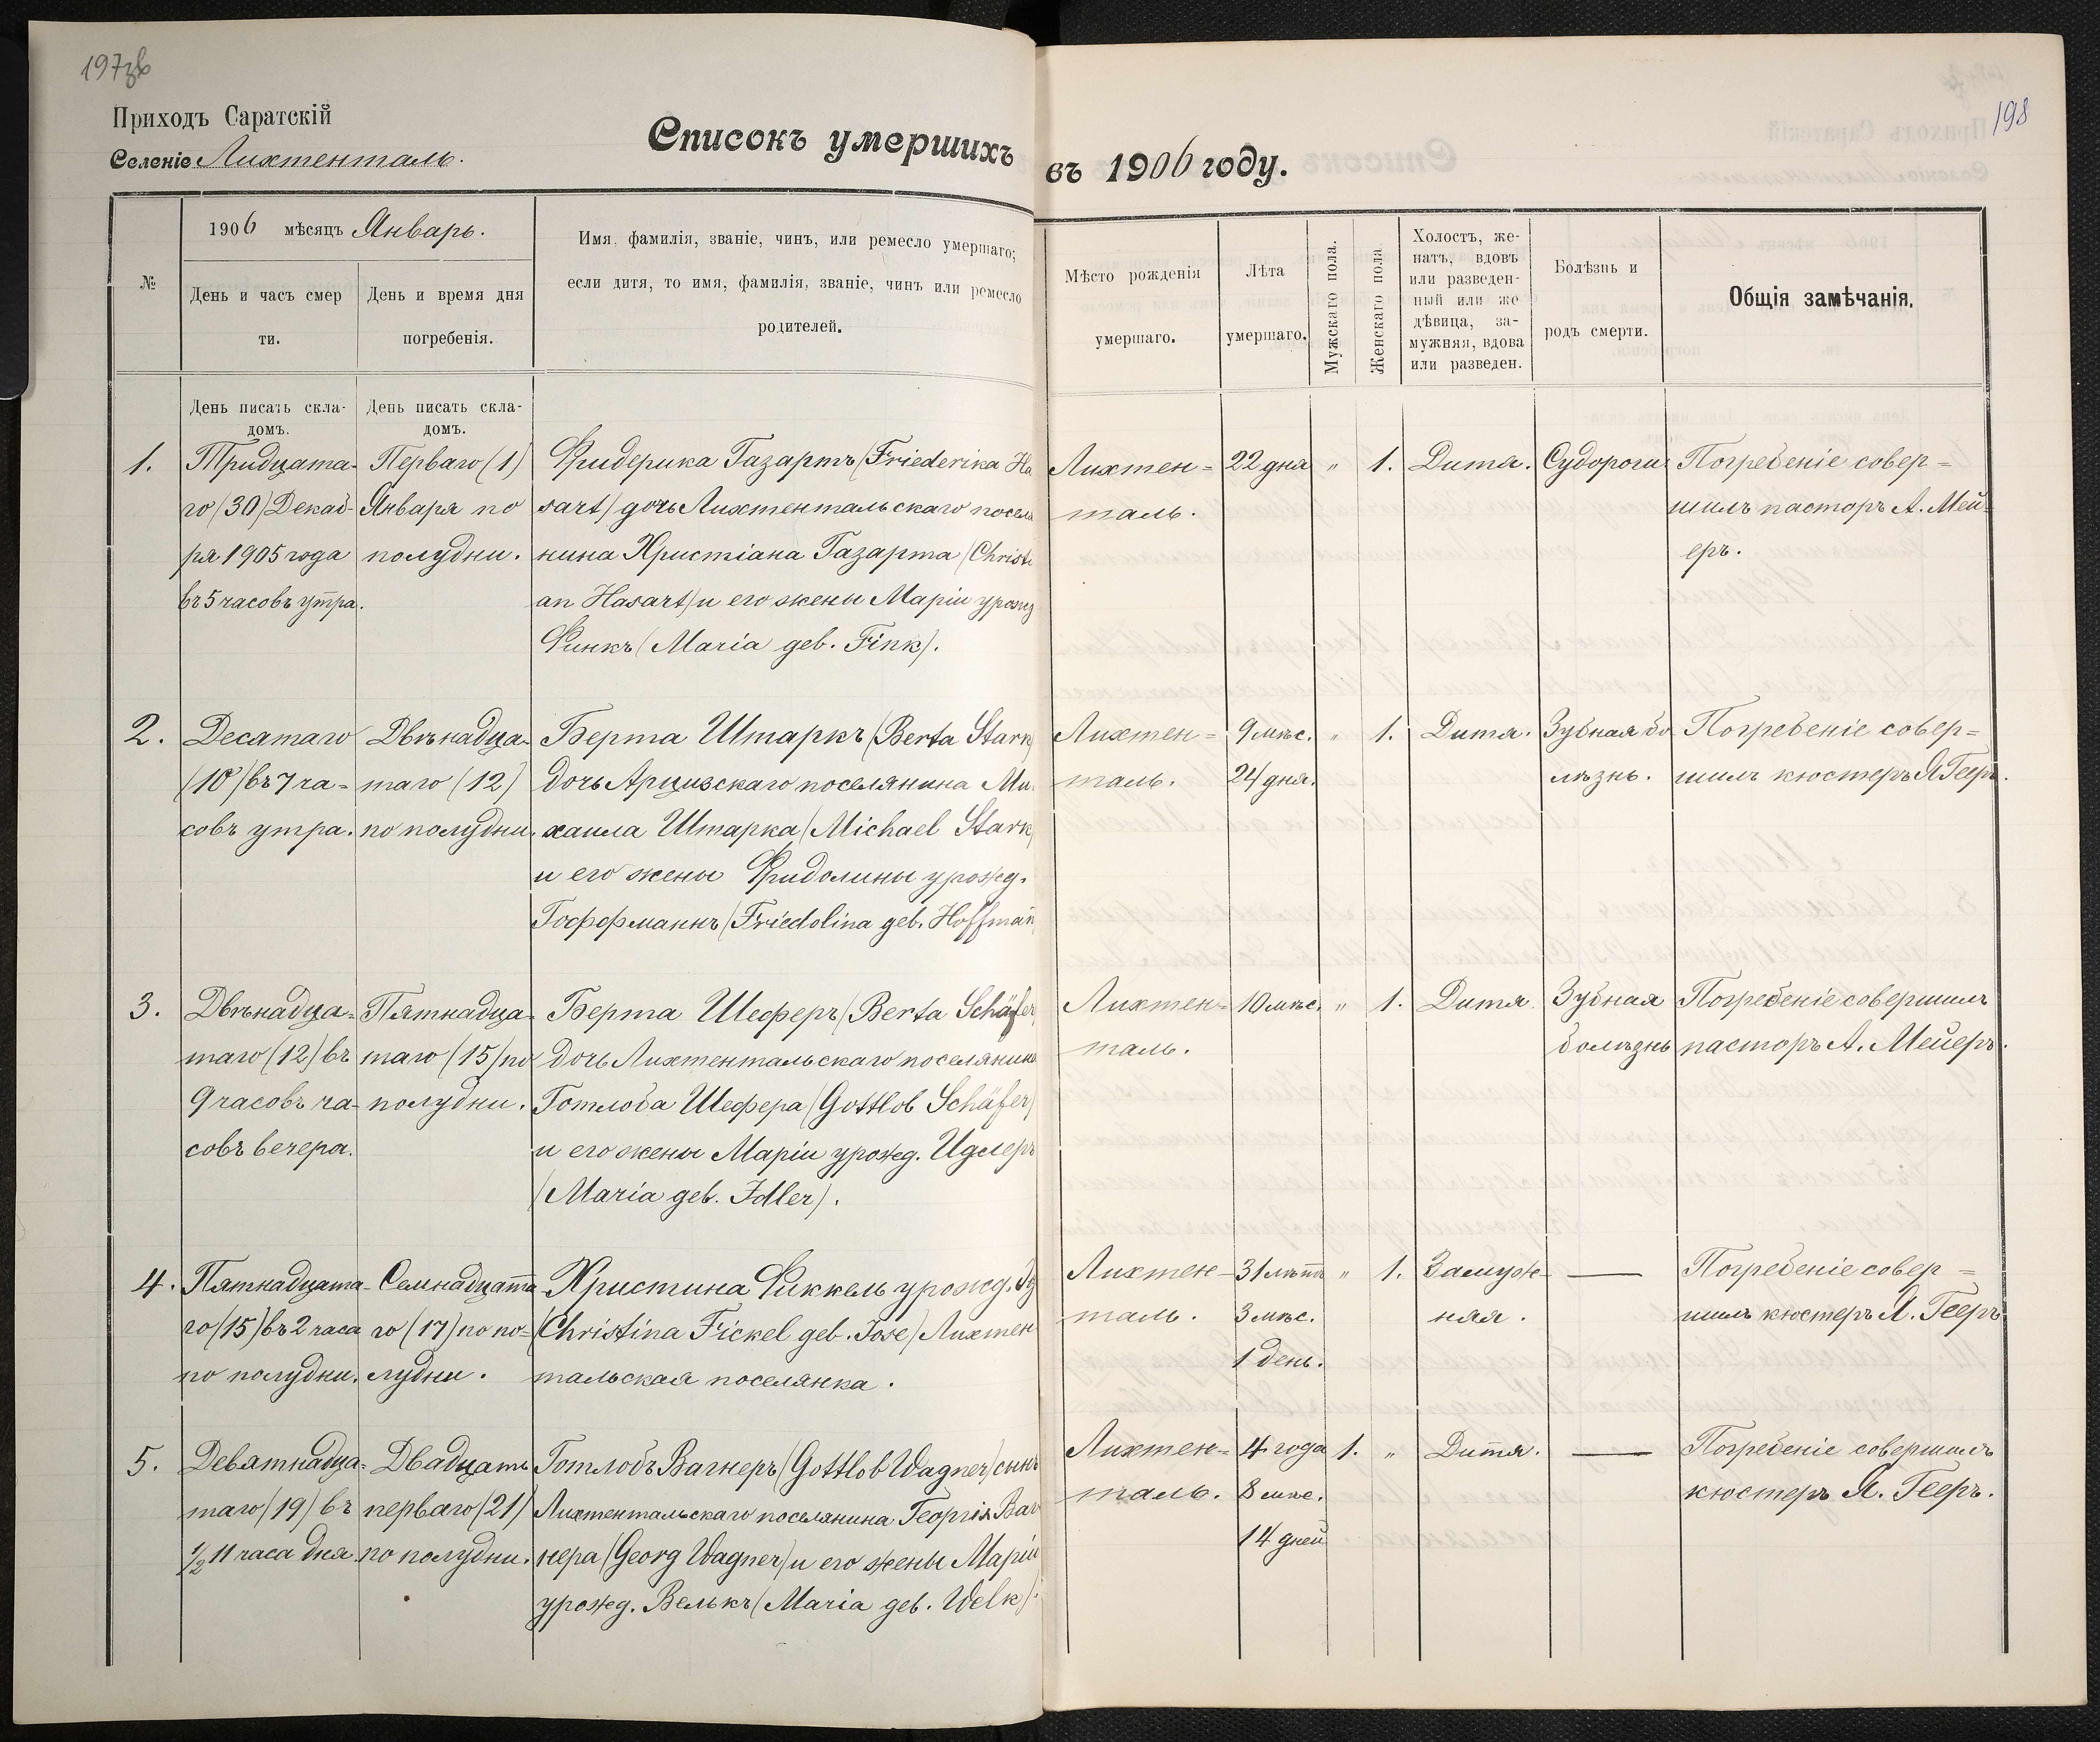 197
198
Приходъ Саратскій
Селеніе Лихтенталь.
Списокъ умершихъ въ 1906 году.
№
1906 мѣсяцъ Январь.
День и часъ смер
ти.
День и время дня
погребенія.
Имя, фамилія, званіе, чинъ, или ремесло умершаго;
если дитя, то имя, фамилія, званіе, чинъ или ремесло
родителей.
Мѣсто рожденія
умершаго.
Лѣта
умершаго.
Мужскаго пола.
Женскаго пола
Холостъ, же-
натъ, вдовъ
или разведен-
ный или же
дѣвица, за-
мужняя, вдова
или разведен.
Болѣзнь и
родъ смерти.
Общія замѣчанія.
День писать скла-
домъ.
День писать скла-
домъ.
1.
Тридцата-
го (30) Декаб-
ря 1905 года
въ 5 часовъ утра.
Перваго (1)
Января по
полудни.
Фридерика Газартъ (Friederika Ha
sart) дочь Лихтентальскаго поселя
нина Христіана Газарта (Christi
an Hasart) и его жены Маріи урожд
Финкъ (Maria geb. Fink).
Лихтен=
таль.
22 дня
"
1.
Дитя.
Судороги
Погребеніе совер=
шилъ пасторъ А. Мей-
еръ.
2.
Десятаго
(10) въ 7 ча=
совъ утра.
Двѣнадца-
таго (12)
по полудни.
Берта Штаркъ (Berta Stark
дочь Арцизскаго поселянина Ми
хаила Штарка (Michael Stark
и его жены Фридолины урожд.
Гоффманнъ (Friedolina geb. Hoffman
Лихтен=
таль.
9 мѣс.
24 дня.
"
1.
Дитя.
Зубная бо
лѣзнь.
Погребеніе совер=
шилъ кюстеръ Я. Гееръ.
3.
Двѣнадца-
таго (12) въ
9 часовъ ча-
совъ вечера.
Пятнадца-
таго (15) по
полудни.
Берта Шеферъ (Berta Schäfer
дочь Лихтентальскаго поселянина
Готлоба Шефера (Gottlob Schäfer)
и его жены Маріи урожд. Идлеръ
(Maria geb. Idler).
Лихтен=
таль.
10 мѣс.
"
1.
Дитя
Зубная
болѣзнь
Погребеніе совершилъ
пасторъ А. Мейеръ.
4.
Пятнадцата-
го (15) въ 2 часа
по полудни.
Семнадцата
го (17) по по=
лудни.
Христина Фиккель урожд.
(Christina Fickel geb. Jose) Лихтен
тальская поселянка.
Лихтен-
таль.
31 лѣтъ
3 мѣс.
1 день.
"
1.
Замуж-
няя.
—
Погребеніе совер=
шилъ кюстеръ Я. Гееръ.
5.
Девятнадца-
таго (19) въ
1/2 11 часа дня
Двадцать
перваго (21)
по полудни.
Готлобъ Вагнеръ (Gottlob Wagner) сынъ
Лихтентальскаго поселянина Георгія Ваг
нера (Georg Wagner) и его жены Маріи
урожд. Велькъ (Maria geb. Welk).
Лихтен=
таль.
4 года
8 мѣс.
14 дней
1.
"
Дитя.
—
Погребеніе совершилъ
кюстеръ Я. Гееръ.